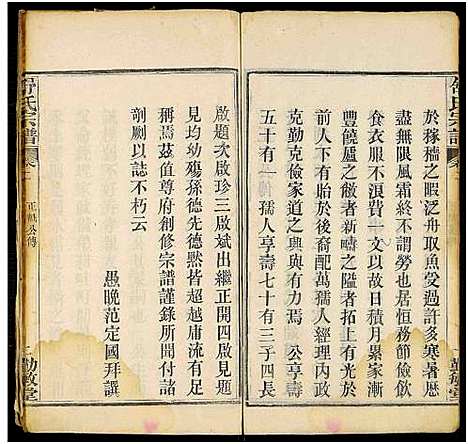 舒氏宗譜
於稼穡之暇泛舟取魚受過許多寒暑歷
盡無限風霜而不辭勞勞居恒務節儉飲
食衣服不濫費一文以故日積月累家漸
饒臚之儆者新疇之隘者拓上有光於
前人下有貽於後裔配萬孺人經理內政
克勤克儉家道之興與有力焉 公享壽
五十有一 孺人享壽七十有三子四長
勤敏堂
啟題次啟珍三啟斌出繼正開四啟見題
見均幼殤孫德先德黙皆超越庸流有足
稱焉茲值尊府創修宗譜謹錄所聞付諸
剞劂以誌不朽云
愚晚范定國拜譔
舒氏宗譜
正帆公傳
勤敏堂